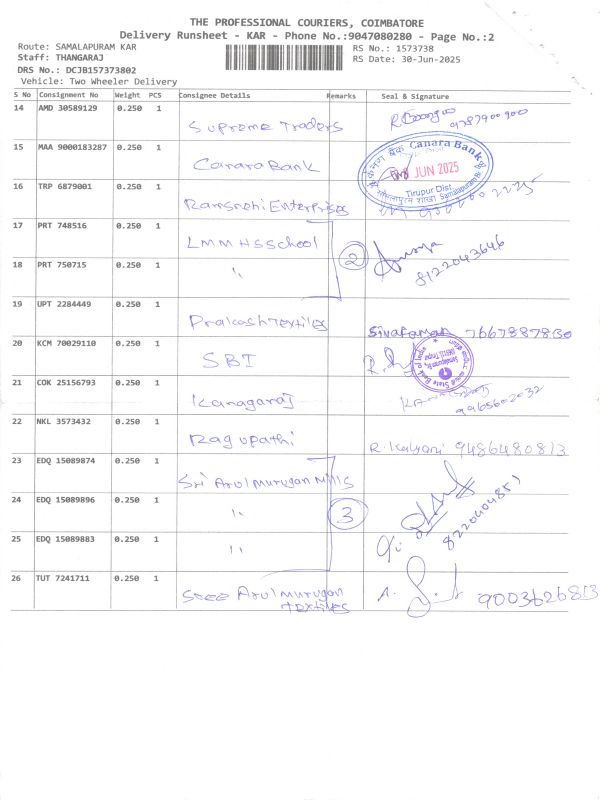 THE PROFESSIONAL COURIERS, COIMBATORE
Delivery Runsheet - KAR - Phone No.:9047080280 - Page No.:2
Route: SAMALAPURAM KAR
Staff: THANGARAJ
DRS No.: DCJB157373802
Vehicle: Two Wheeler Delivery
RS No.: 1573738
RS Date: 30-Jun-2025
S No Consignment No Weight PCS Consignee Details Remarks Seal & Signature
14 AMD 30589129 0.250 1
Supreme Traders 9787900900
15 MAA 9000183287 0.250 1
Canara Bank
केनरा बैंक Canara Bank
JUN 2025
Tirupur Dist.
Samalapuram Br.
16 TRP 6879001 0.250 1
Ramsnehi Enterprises
17 PRT 748516 0.250 1
LMMHSSchool 2
18 PRT 750715 0.250 1
" 8122043646
19 UPT 2284449 0.250 1
Prakash Textiles Sivaraman 7667887830
20 KCM 70029110 0.250 1
SBI
21 COK 25156793 0.250 1
Kanagaraj 9965602032
22 NKL 3573432 0.250 1
Ragupathi R. Kalyani 9486480813
23 EDQ 15089874 0.250 1
Sri Arulmurugan Mills
24 EDQ 15089896 0.250 1
" 3 8220404851
25 EDQ 15089883 0.250 1
"
26 TUT 7241711 0.250 1
Sree Arulmurugan
Textiles 9003626813